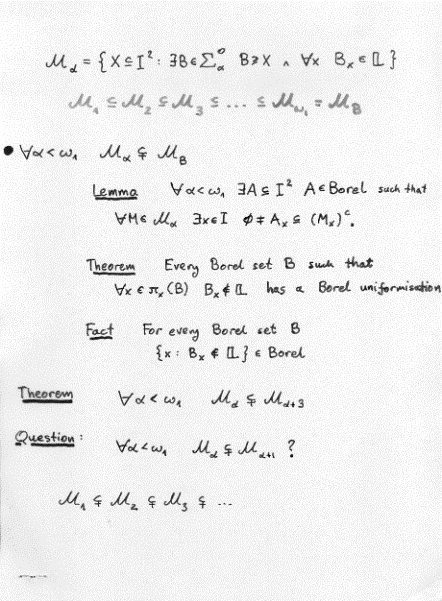 𝓜_α = { X ⊆ I² : ∃B ∈ Σ⁰_α B ⊇ X ∧ ∀x B_x ∈ 𝕃 }
𝓜₁ ⊆ 𝓜₂ ⊆ 𝓜₃ ⊆ ... ⊆ 𝓜_ω₁ = 𝓜_B
• ∀α < ω₁ 𝓜_α ⊊ 𝓜_B
Lemma ∀α < ω₁ ∃A ⊆ I² A ∈ Borel such that
∀M ∈ 𝓜_α ∃x ∈ I ∅ ≠ A_x ⊆ (M_x)ᶜ.
Theorem Every Borel set B such that
∀x ∈ π_x(B) B_x ∉ 𝕃 has a Borel uniformisation
Fact For every Borel set B
{x : B_x ∉ 𝕃} ∈ Borel
Theorem ∀α < ω₁ 𝓜_α ⊊ 𝓜_α+3
Question : ∀α < ω₁ 𝓜_α ⊊ 𝓜_α+1 ?
𝓜₁ ⊊ 𝓜₂ ⊊ 𝓜₃ ⊊ ...